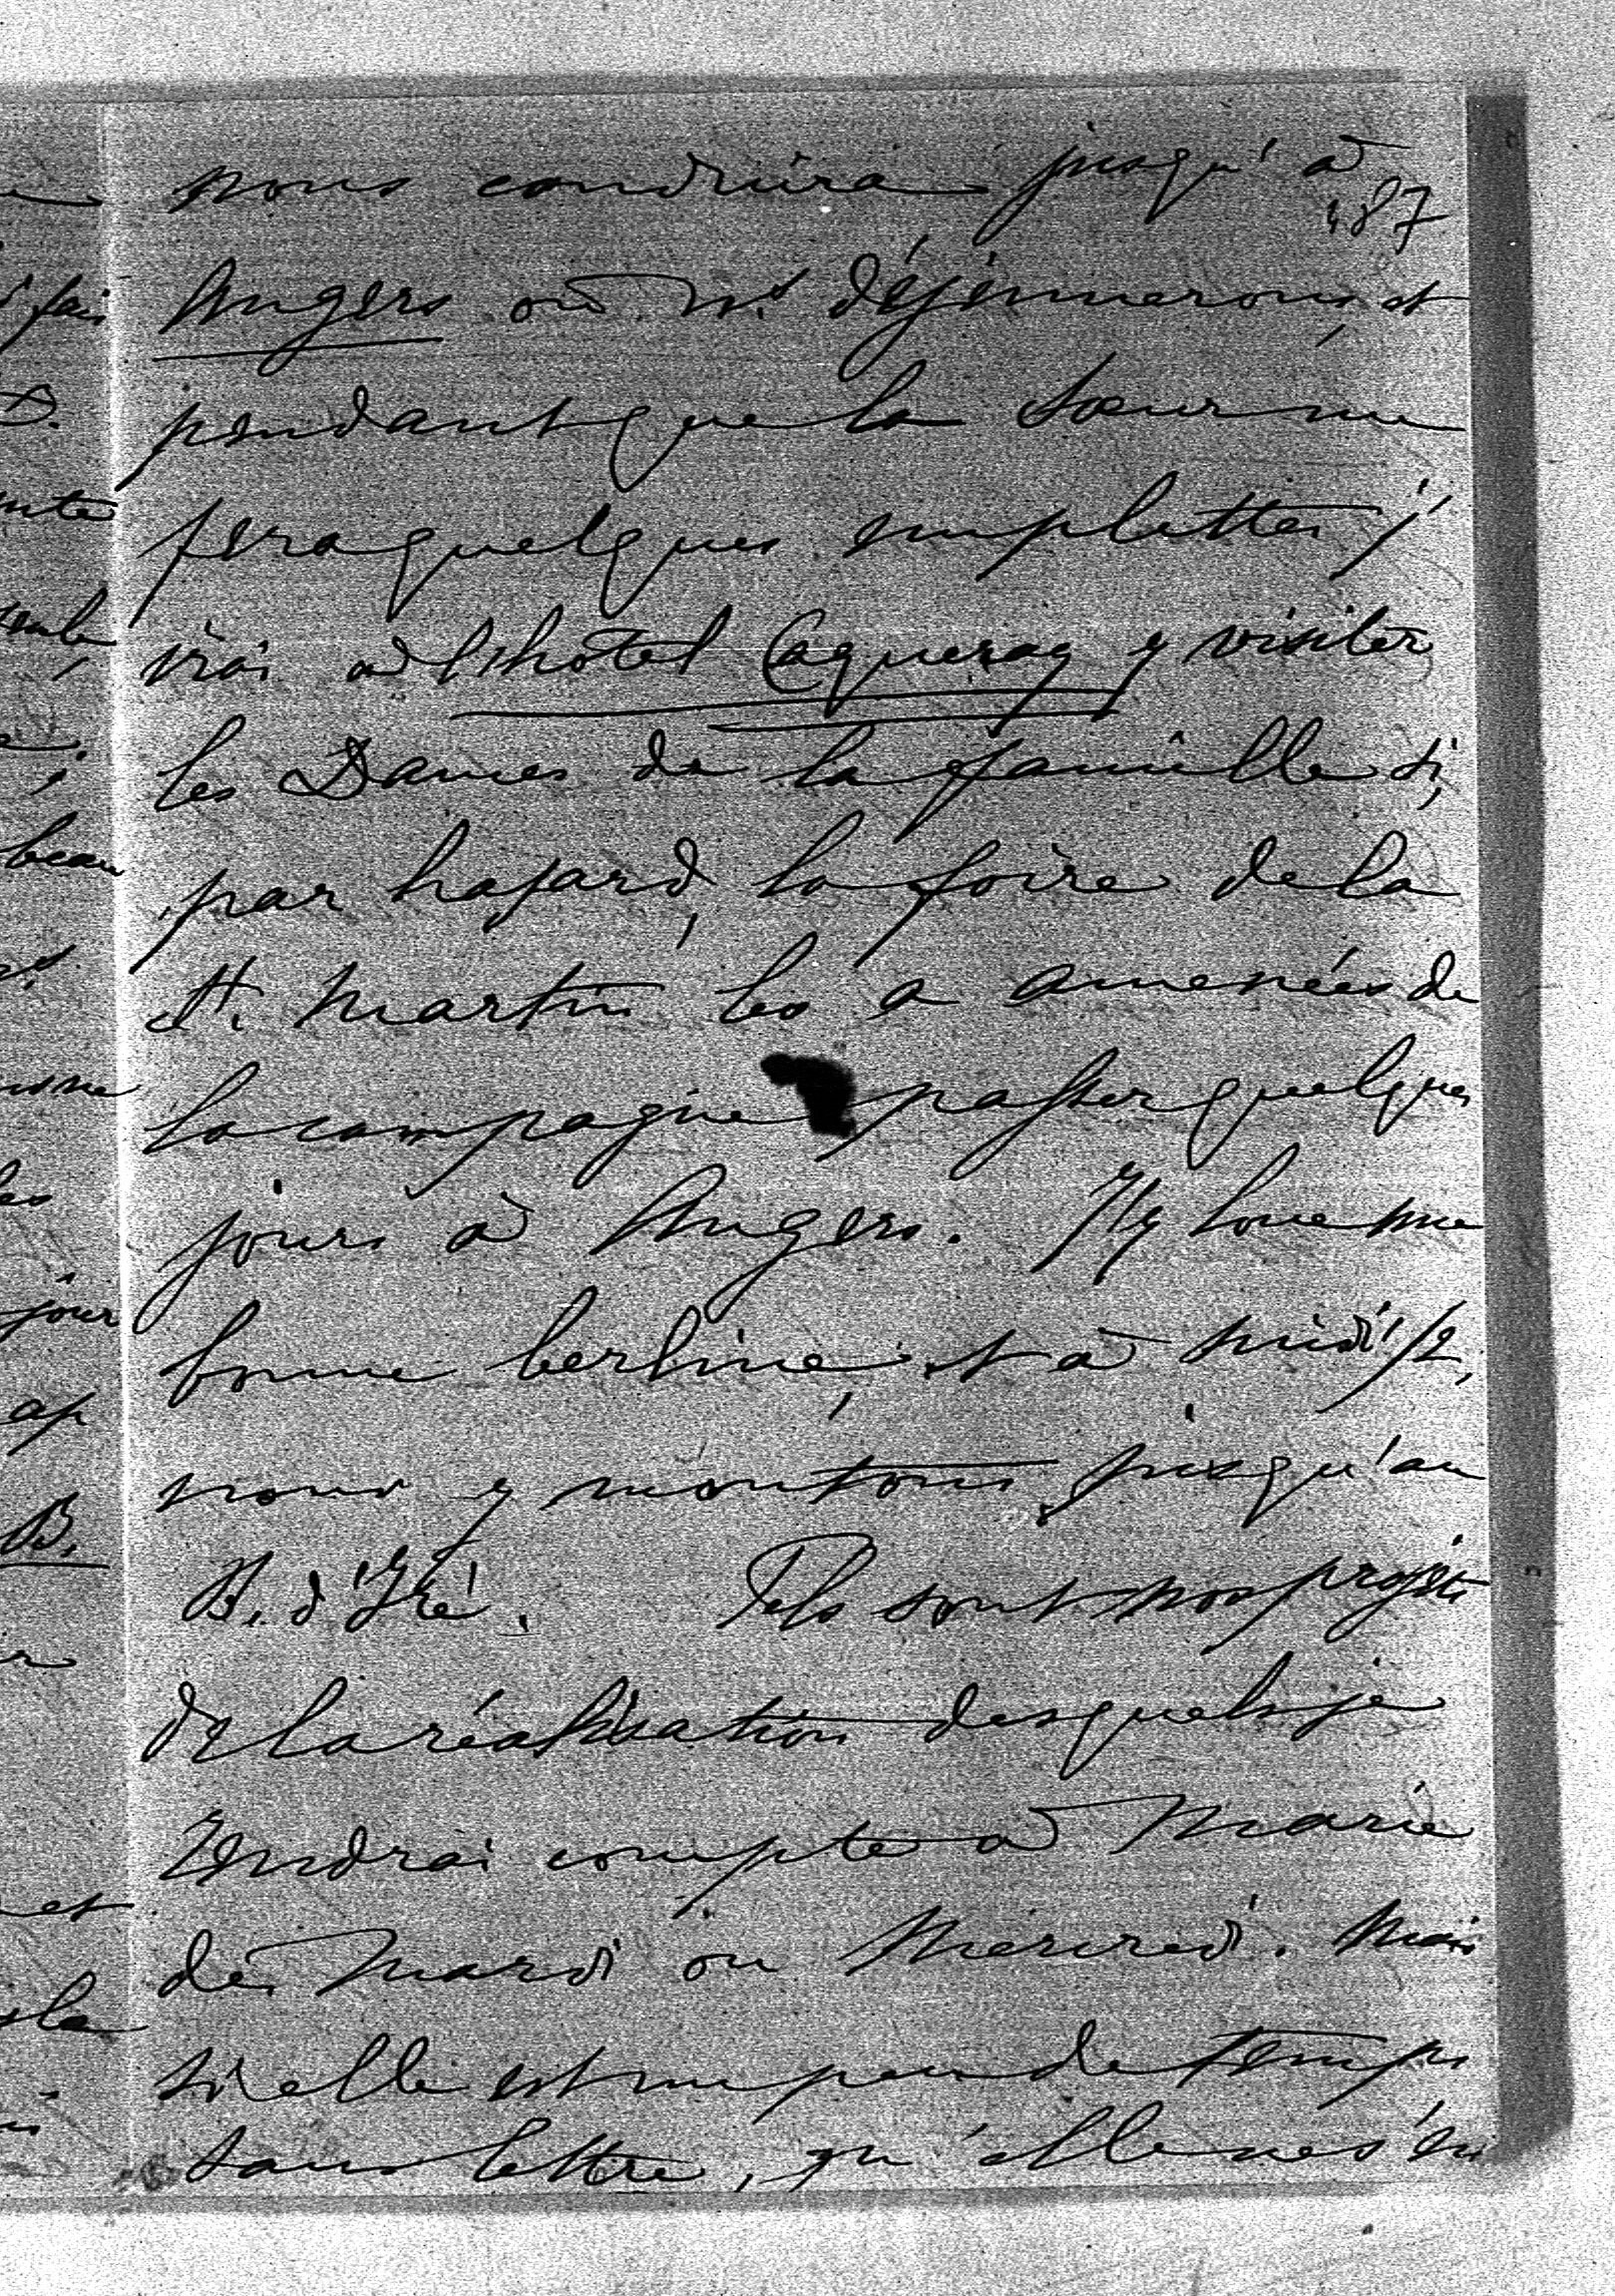 nous conduira jusqu'à
487
Angers où ns déjeunerons, et
pendant que la Sœur me
fera quelques emplettes j'
irai à l'hôtel Caqueray y visiter
les Dames de la famille si,
par hasard, la foire de la
St. Martin les a amenées de
la campagne passer quelques
jours à Angers. J'y loue une
bonne berline, et à midi 1/2,
nous y montons jusqu'au
B. d'Iré. Tels sont nos projets
de la réalisation desquels je
rendrai compte à Marie
dès Mardi ou Mercredi. Mais
si elle est un peu de temps
sans lettre, qu'elle ne s'en